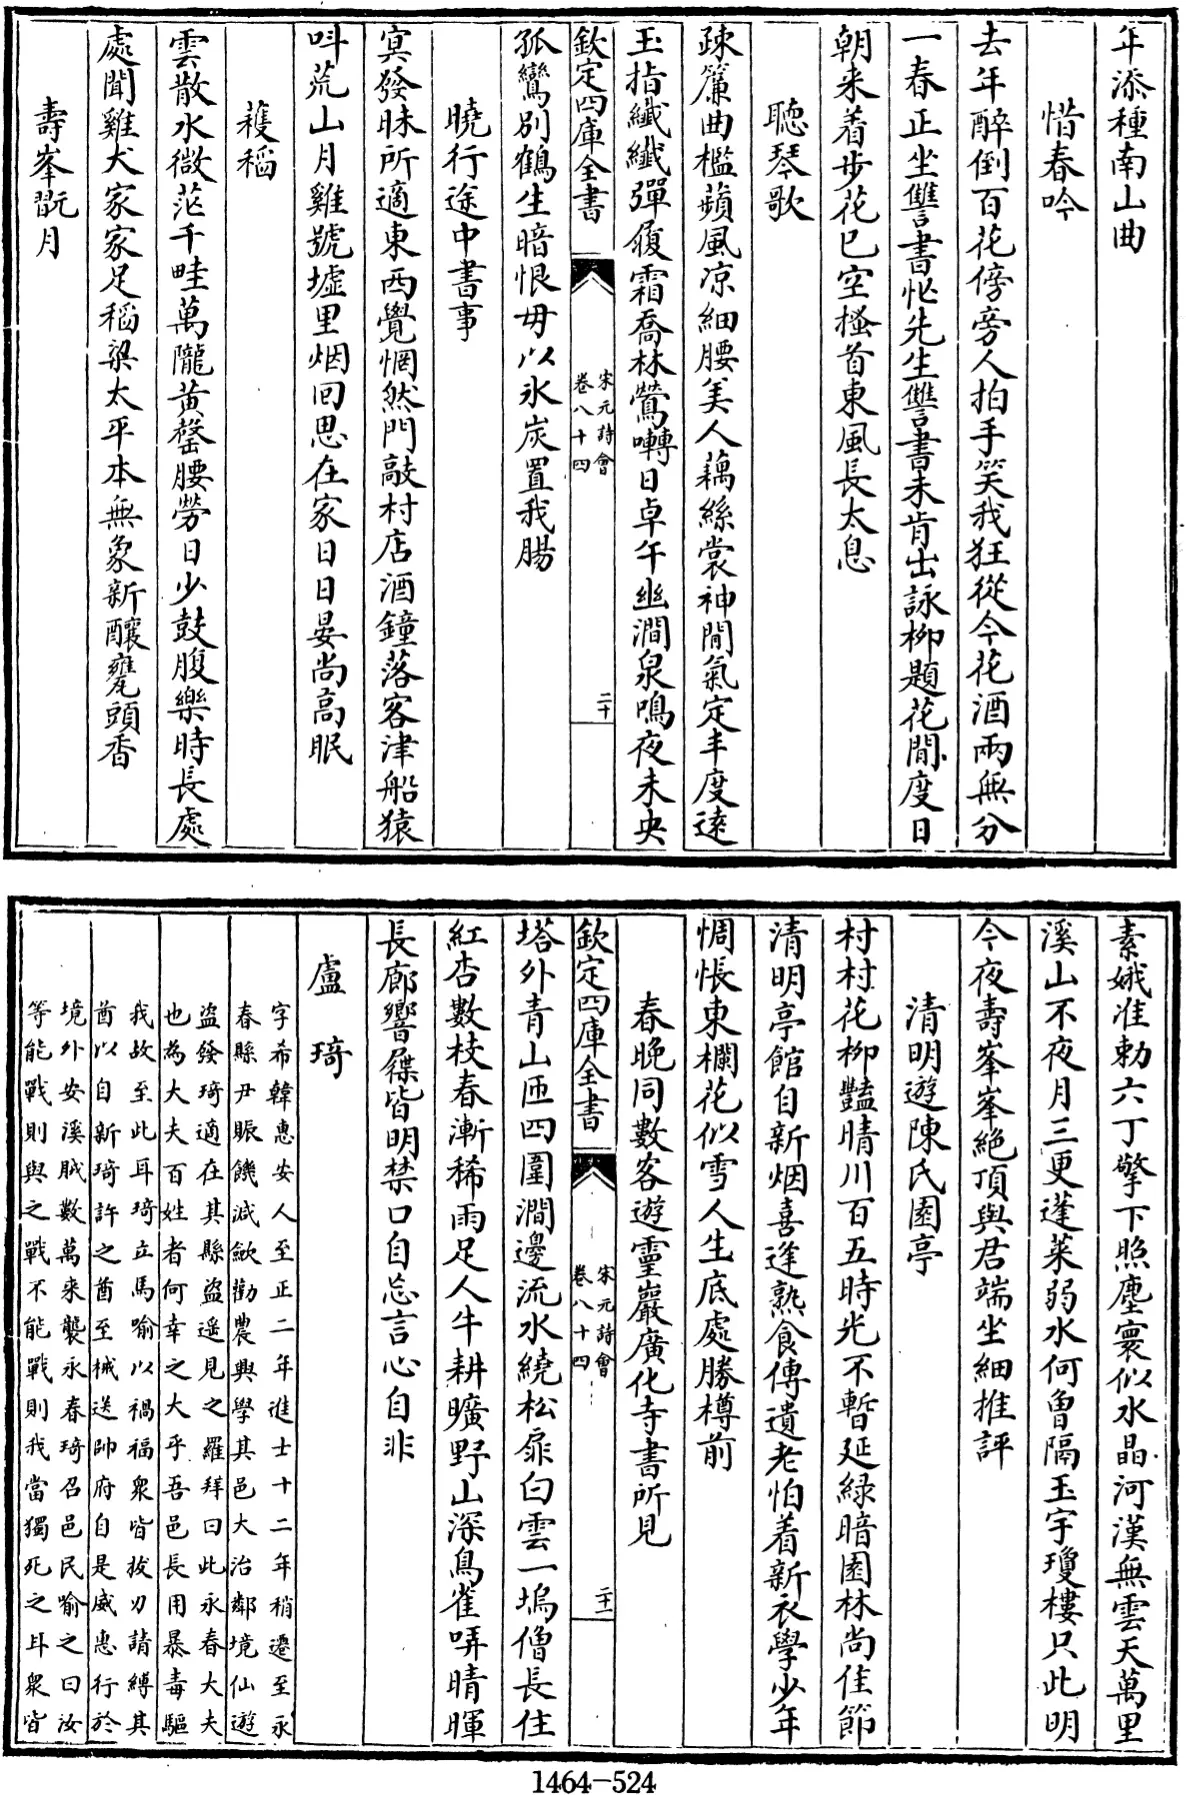 年添種南山曲
惜春吟
去年醉倒百花傍旁人拍手笑我狂從今花酒兩無分
一春正坐讐書忙先生讐書未肯出詠柳題花間度日
朝来着步花已空搔首東風長太息
聽琴歌
疎簾曲檻蘋風凉細腰美人藕絲裳神閒氣定丰度逺
玉指纖纖彈履霜喬林鶯囀日卓午幽澗泉鳴夜未央
欽定四庫全書
宋元詩會
卷八十四
二十
孤鸞别鶴生暗恨毋以氷炭置我腸
曉行途中書事
寞發昧所適東西覺惘然門敲村店酒鐘落客津船猿
呌荒山月雞號墟里烟回思在家日日晏尚高眠
穫稻
雲散水微茫千畦萬隴黄罄腰勞日少鼓腹樂時長處
處聞雞犬家家足稻粱太平本無象新釀甕頭香
壽峯翫月
素娥准勅六丁擎下照塵寰似水晶河漢無雲天萬里
溪山不夜月三更蓬萊弱水何曾隔玉宇瓊樓只此明
今夜壽峯峯絶頂與君端坐細推評
清明遊陳氏園亭
村村花柳豔晴川百五時光不暫延緑暗園林尚佳節
清明亭館自新烟喜逢熟食傳遺老怕着新衣學少年
惆悵東欄花似雪人生底處勝樽前
春晚同數客遊靈巖廣化寺書所見
欽定四庫全書
宋元詩會
卷八十四
二十一
塔外青山匝四圍澗邊流水繞松扉白雲一塢僧長住
紅杏數枝春漸稀雨足人牛耕曠野山深鳥雀哢晴暉
長廊響屧皆明禁口自忘言心自非
盧琦
字希韓惠安人至正二年進士十二年稍遷至永
春縣尹賑饑減斂勸農興學其邑大治鄰境仙遊
盜發琦適在其縣盜遥見之羅拜曰此永春大夫
也為大夫百姓者何幸之大乎吾邑長用暴毒驅
我故至此耳琦立馬喻以禍福衆皆拔刃請縛其
酋以自新琦許之酋至械送帥府自是威惠行於
境外安溪賊數萬来襲永春琦召邑民喻之曰汝
等能戰則與之戰不能戰則我當獨死之耳衆皆
1464-524